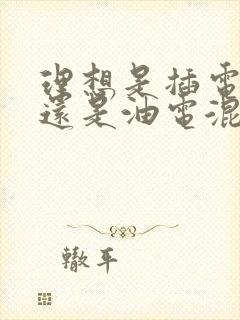 理想是插電
還是油電混
轍平